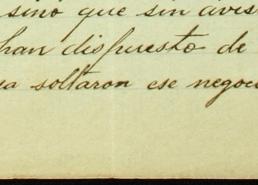 sino que sin avis
han dispuesto de
a soltaron ese negoc